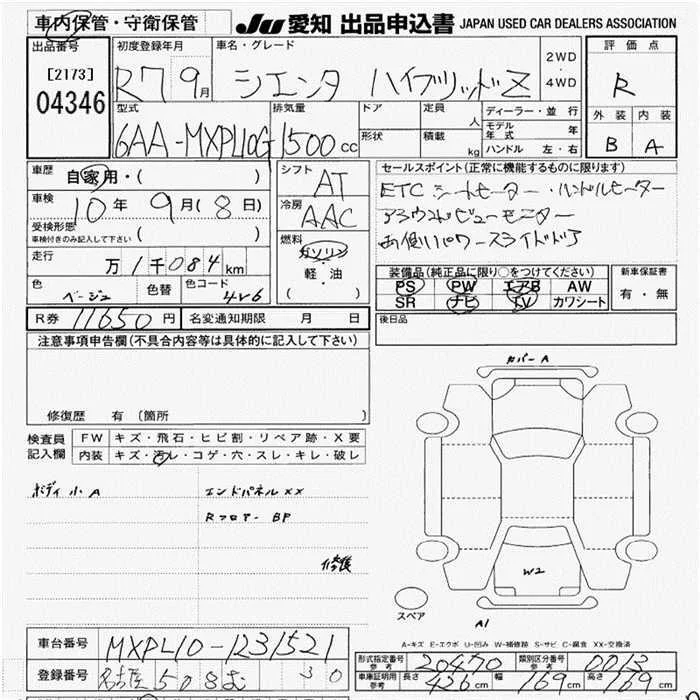 車内保管・守衛保管
JU 愛知 出品申込書 JAPAN USED CAR DEALERS ASSOCIATION
出品番号
[2173]
04346
初度登録年月
R7 9月
車名・グレード
シエンタ ハイブリッドZ
2WD
・
4WD
評価点
R
外装 内装
B A
型式
6AA-MXPL10G
排気量
1500cc
ドア
形状
定員 人
積載 kg
ディーラー・並行
モデル年式 年
ハンドル 左・右
車歴
自家用・( )
車検
10年 9月(8日)
受検形態
車検付きのみ記入して下さい ( )
走行
万 1千084km
色
ベージュ
色替
色コード
4V6
シフト
AT
冷房
AAC
燃料
ガソリン
・
軽・油
( )
セールスポイント(正常に機能するものに限ります)
ETC シートヒーター・ハンドルヒーター
アラウンドビューモニター
両側パワースライドドア
装備品(純正品に限り○をつけてください)
PS PW エアB AW
SR ナビ TV カワシート
新車保証書
有・無
R券 11650円
名変通知期限 月 日
後日品
注意事項申告欄(不具合内容等は具体的に記入して下さい)
修復歴 有 (箇所 )
検査員
記入欄
FW キズ・飛石・ヒビ割・リペア跡・X要
内装 キズ・汚レ・コゲ・穴・スレ・キレ・破レ
ボディ 小A
エンドパネル XX
Rフロアー BP
修復
カバー A
W2
スペア
A1
A-キズ E-エクボ U-凹み W-補修跡 S-サビ C-腐食 XX-交換済
車台番号
MXPL10-1231521
登録番号
名古屋 508 む 30
型式指定番号
参考
20470
類別区分番号
参考
0013
車庫証明用
参考
長さ 426cm 幅 169cm 高さ 169cm